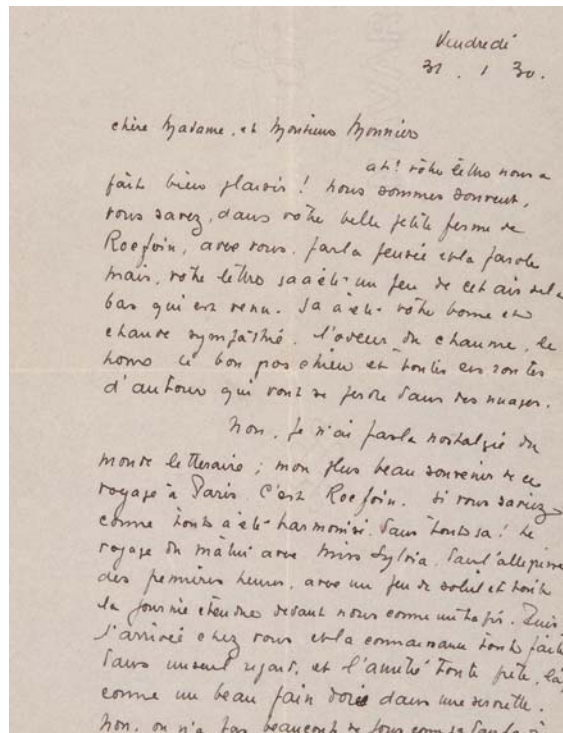 Vendredi
31 . 1 30.
chère Madame, et Monsieur Monnier
ah! votre lettre nous a
fait bien plaisir ! nous sommes souvent,
vous savez, dans votre belle petite ferme de
Rocfoin, avec vous, par la pensée et la parole
mais, votre lettre sa a été un peu de cet air de la
bas qui est venu. Sa a été votre bonne et
chaude sympathie. l'odeur du chaume, le
bon chien et toutes ces routes
d'autour qui vont se perdre dans des nuages.
Non, je n'ai pas la nostalgie du
monde litteraire ; mon plus beau souvenir de ce
voyage à Paris c'est Rocfoin. si vous saviez
comme tout a été harmonisé dans tout sa ! Le
voyage du matin avec Miss Sylvia, dans l'allegresse
des premières heures, avec un peu de soleil et toute
la journée étendue devant nous comme un tapis. Puis
l'arrivée chez vous et la connaissance toute faite
dans un seul regard, et l'amitié toute prête, là,
comme un beau pain doré dans une serviette.
Non, on n'a pas beaucoup de jours comme